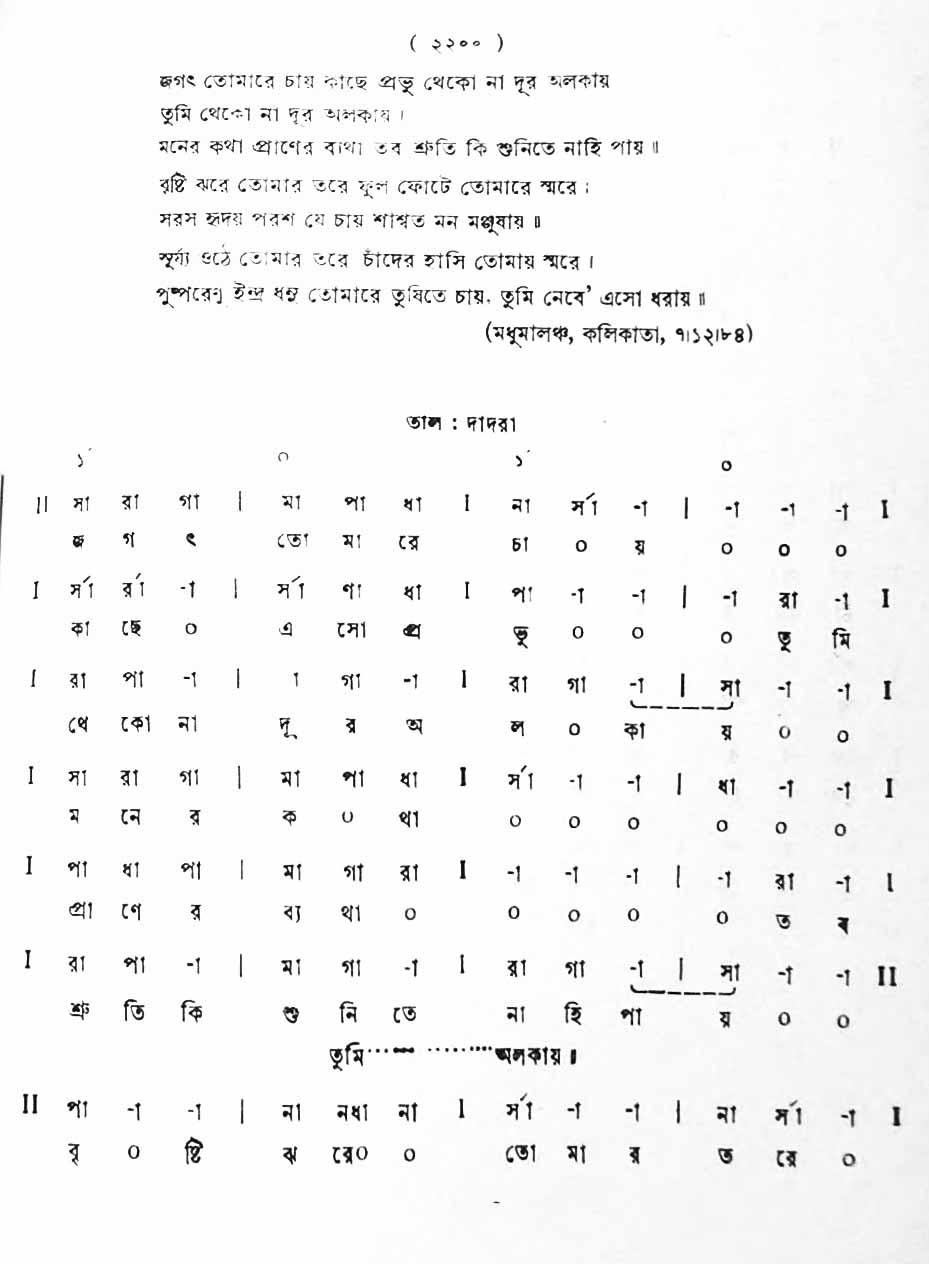 ( ২২০০ )
জগৎ তোমারে চায় কাছে প্রভু থেকো না দূর অলকায়
তুমি থেকো না দূর অলকায় ।
মনের কথা প্রাণের ব্যথা তব শ্রুতি কি শুনিতে নাহি পায় ॥
বৃষ্টি ঝরে তোমার তরে ফুল ফোটে তোমারে স্মরে ;
সরস হৃদয় পরশ যে চায় শাশ্বত মন মঞ্জুষায় ॥
সূর্য্য ওঠে তোমার তরে চাঁদের হাসি তোমায় স্মরে ।
পুষ্পরেণু ইন্দ্র ধনু তোমারে তুষিতে চায়. তুমি নেবে' এসো ধরায় ॥
(মধুমালঞ্চ, কলিকাতা, ৭।১২।৮৪)
তাল : দাদরা
১´ ০ ১´ ০
II সা রা গা | মা পা ধা I না র্সা -া | -া -া -া I
জ গ ৎ তো মা রে চা ০ য় ০ ০ ০
I র্সা র্রা -া | র্সা ণা ধা I পা -া -া | -া রা -া I
কা ছে ০ এ সো প্র ভু ০ ০ ০ তু মি
I রা পা -া | া গা -া I রা গা -া | সা -া -া I
থে কো না দূ র অ ল ০ কা য় ০ ০
I সা রা গা | মা পা ধা I র্সা -া -া | ধা -া -া I
ম নে র ক ০ থা ০ ০ ০ ০ ০ ০
I পা ধা পা | মা গা রা I -া -া -া | -া রা -া I
প্রা ণে র ব্য থা ০ ০ ০ ০ ০ ত ব
I রা পা -া | মা গা -া I রা গা -া | সা -া -া II
শ্রু তি কি শু নি তে না হি পা য় ০ ০
তুমি...... ........অলকায় ॥
II পা -া -া | না নধা না I র্সা -া -া | না র্সা -া I
বৃ ০ ষ্টি ঝ রে০ ০ তো মা র ত রে ০